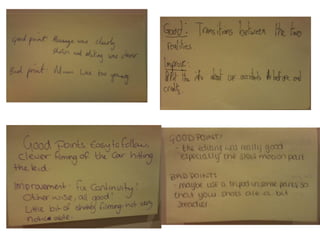 Good point: Message was clearly
shown and editing was clever
Bad point: Mum was too young
Good: Transitions between the two
realities
Improve:
the info about car accidents at before and
credits.
Good Points Easy to follow
clever filming of the car hitting
the kid.
Improvement: fix Continuity!
Other wise, all good!
Little bit of shakey filming not very
noticeable.
GOOD POINT:
- the editing was really good
especially the slow motion part
BAD POINTS
- maybe use a tripod in some parts so
that your shots are a bit
smoother